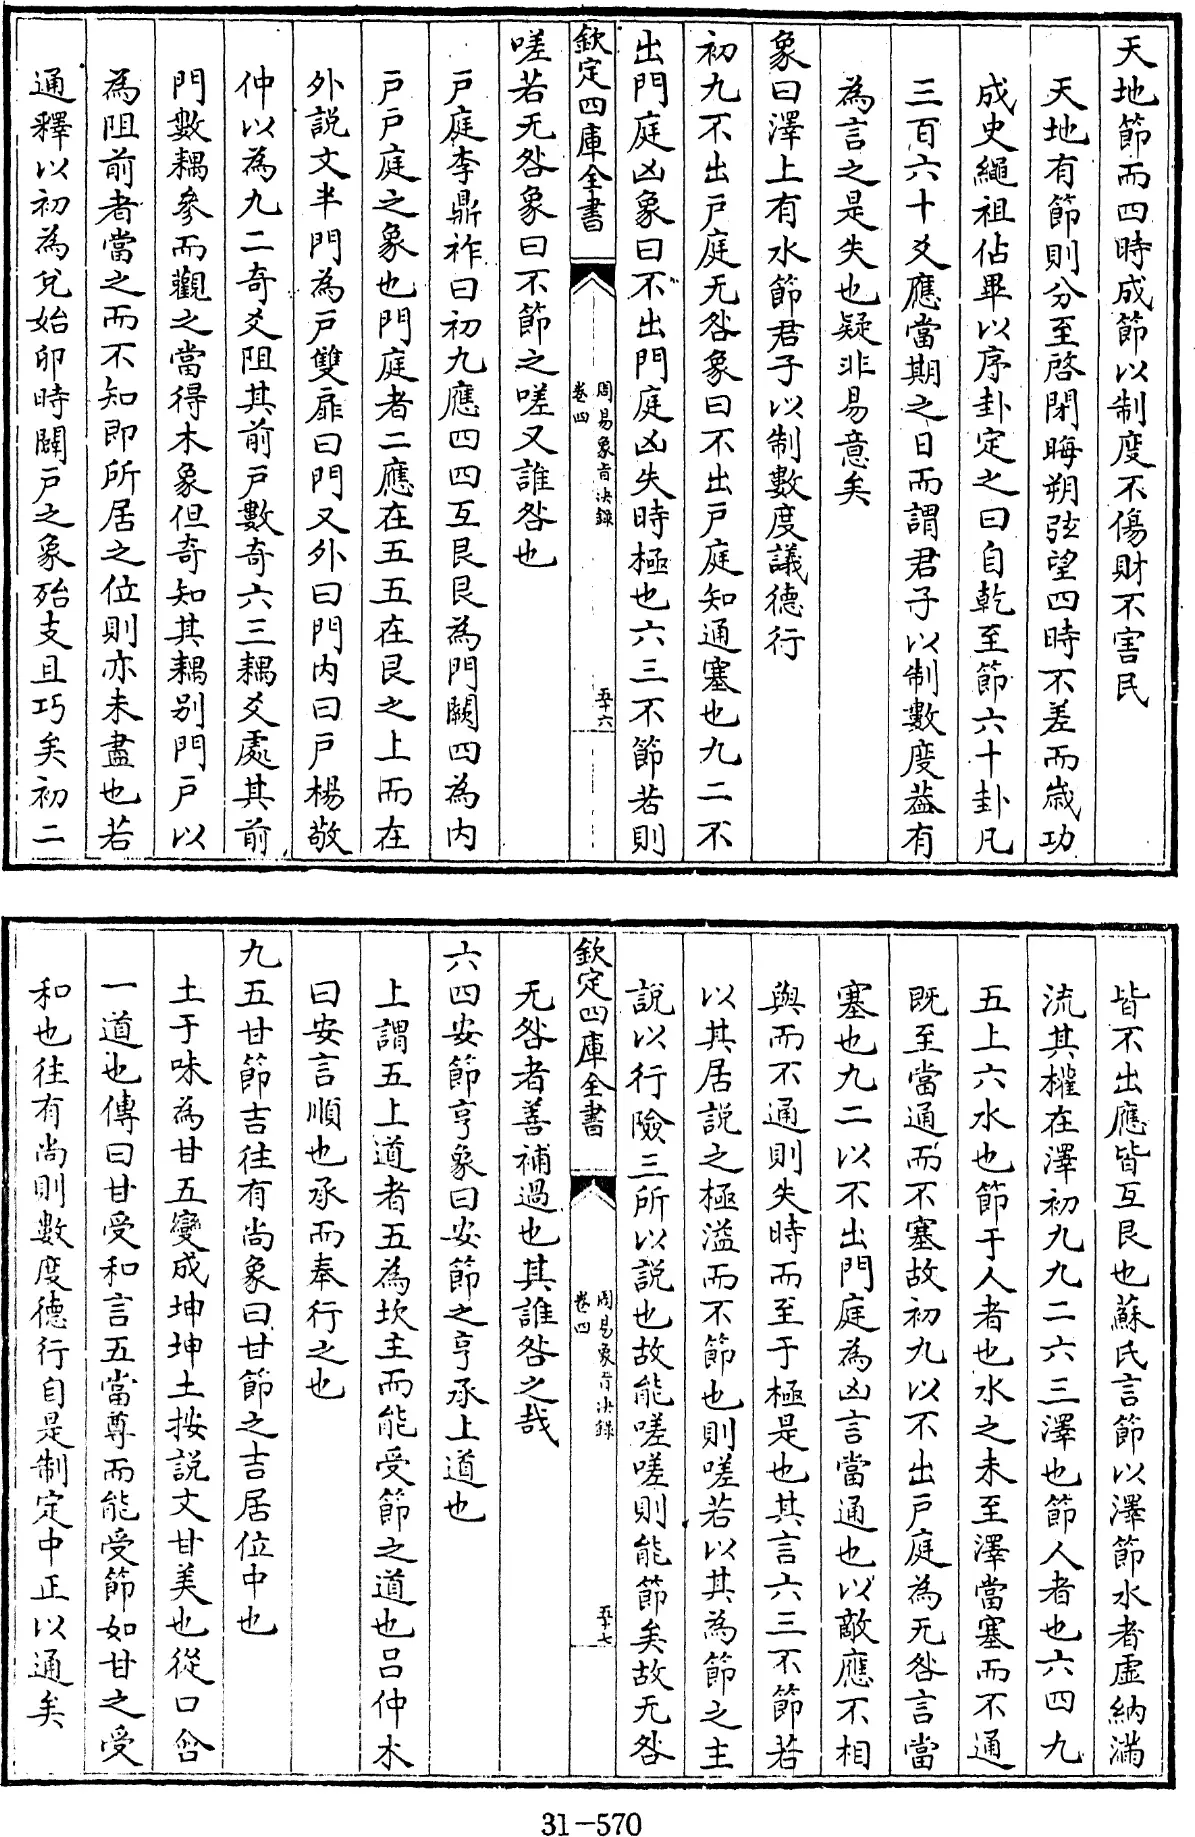 天地節而四時成節以制度不傷財不害民
天地有節則分至啓閉晦朔弦望四時不差而歳功
成史繩祖佔畢以序卦定之曰自乾至節六十卦凡
三百六十爻應當期之日而謂君子以制數度葢有
為言之是失也疑非易意矣
象曰澤上有水節君子以制數度議德行
初九不出戸庭无咎象曰不出戸庭知通塞也九二不
出門庭凶象曰不出門庭凶失時極也六三不節若則
欽定四庫全書
周易象旨決録
卷四
五十六
嗟若无咎象曰不節之嗟又誰咎也
戸庭李鼎祚曰初九應四四互艮艮為門闕四為内
戸戸庭之象也門庭者二應在五五在艮之上而在
外説文半門為戸雙扉曰門又外曰門内曰戸楊敬
仲以為九二奇爻阻其前戸數奇六三耦爻處其前
門數耦參而觀之當得木象但奇知其耦别門戸以
為阻前者當之而不知即所居之位則亦未盡也若
通釋以初為兌始卯時闢戸之象殆支且巧矣初二
皆不出應皆互艮也蘇氏言節以澤節水者虛納滿
流其權在澤初九九二六三澤也節人者也六四九
五上六水也節于人者也水之未至澤當塞而不通
既至當通而不塞故初九以不出戸庭為无咎言當
塞也九二以不出門庭為凶言當通也以敵應不相
與而不通則失時而至于極是也其言六三不節若
以其居説之極溢而不節也則嗟若以其為節之主
説以行險三所以説也故能嗟嗟則能節矣故无咎
欽定四庫全書
周易象旨決録
卷四
五十七
无咎者善補過也其誰咎之哉
六四安節亨象曰安節之亨承上道也
上謂五上道者五為坎主而能受節之道也吕仲木
曰安言順也承而奉行之也
九五甘節吉往有尚象曰甘節之吉居位中也
土于味為甘五變成坤坤土按説文甘美也從口含
一道也傳曰甘受和言五當尊而能受節如甘之受
和也往有尚則數度德行自是制定中正以通矣
31-570